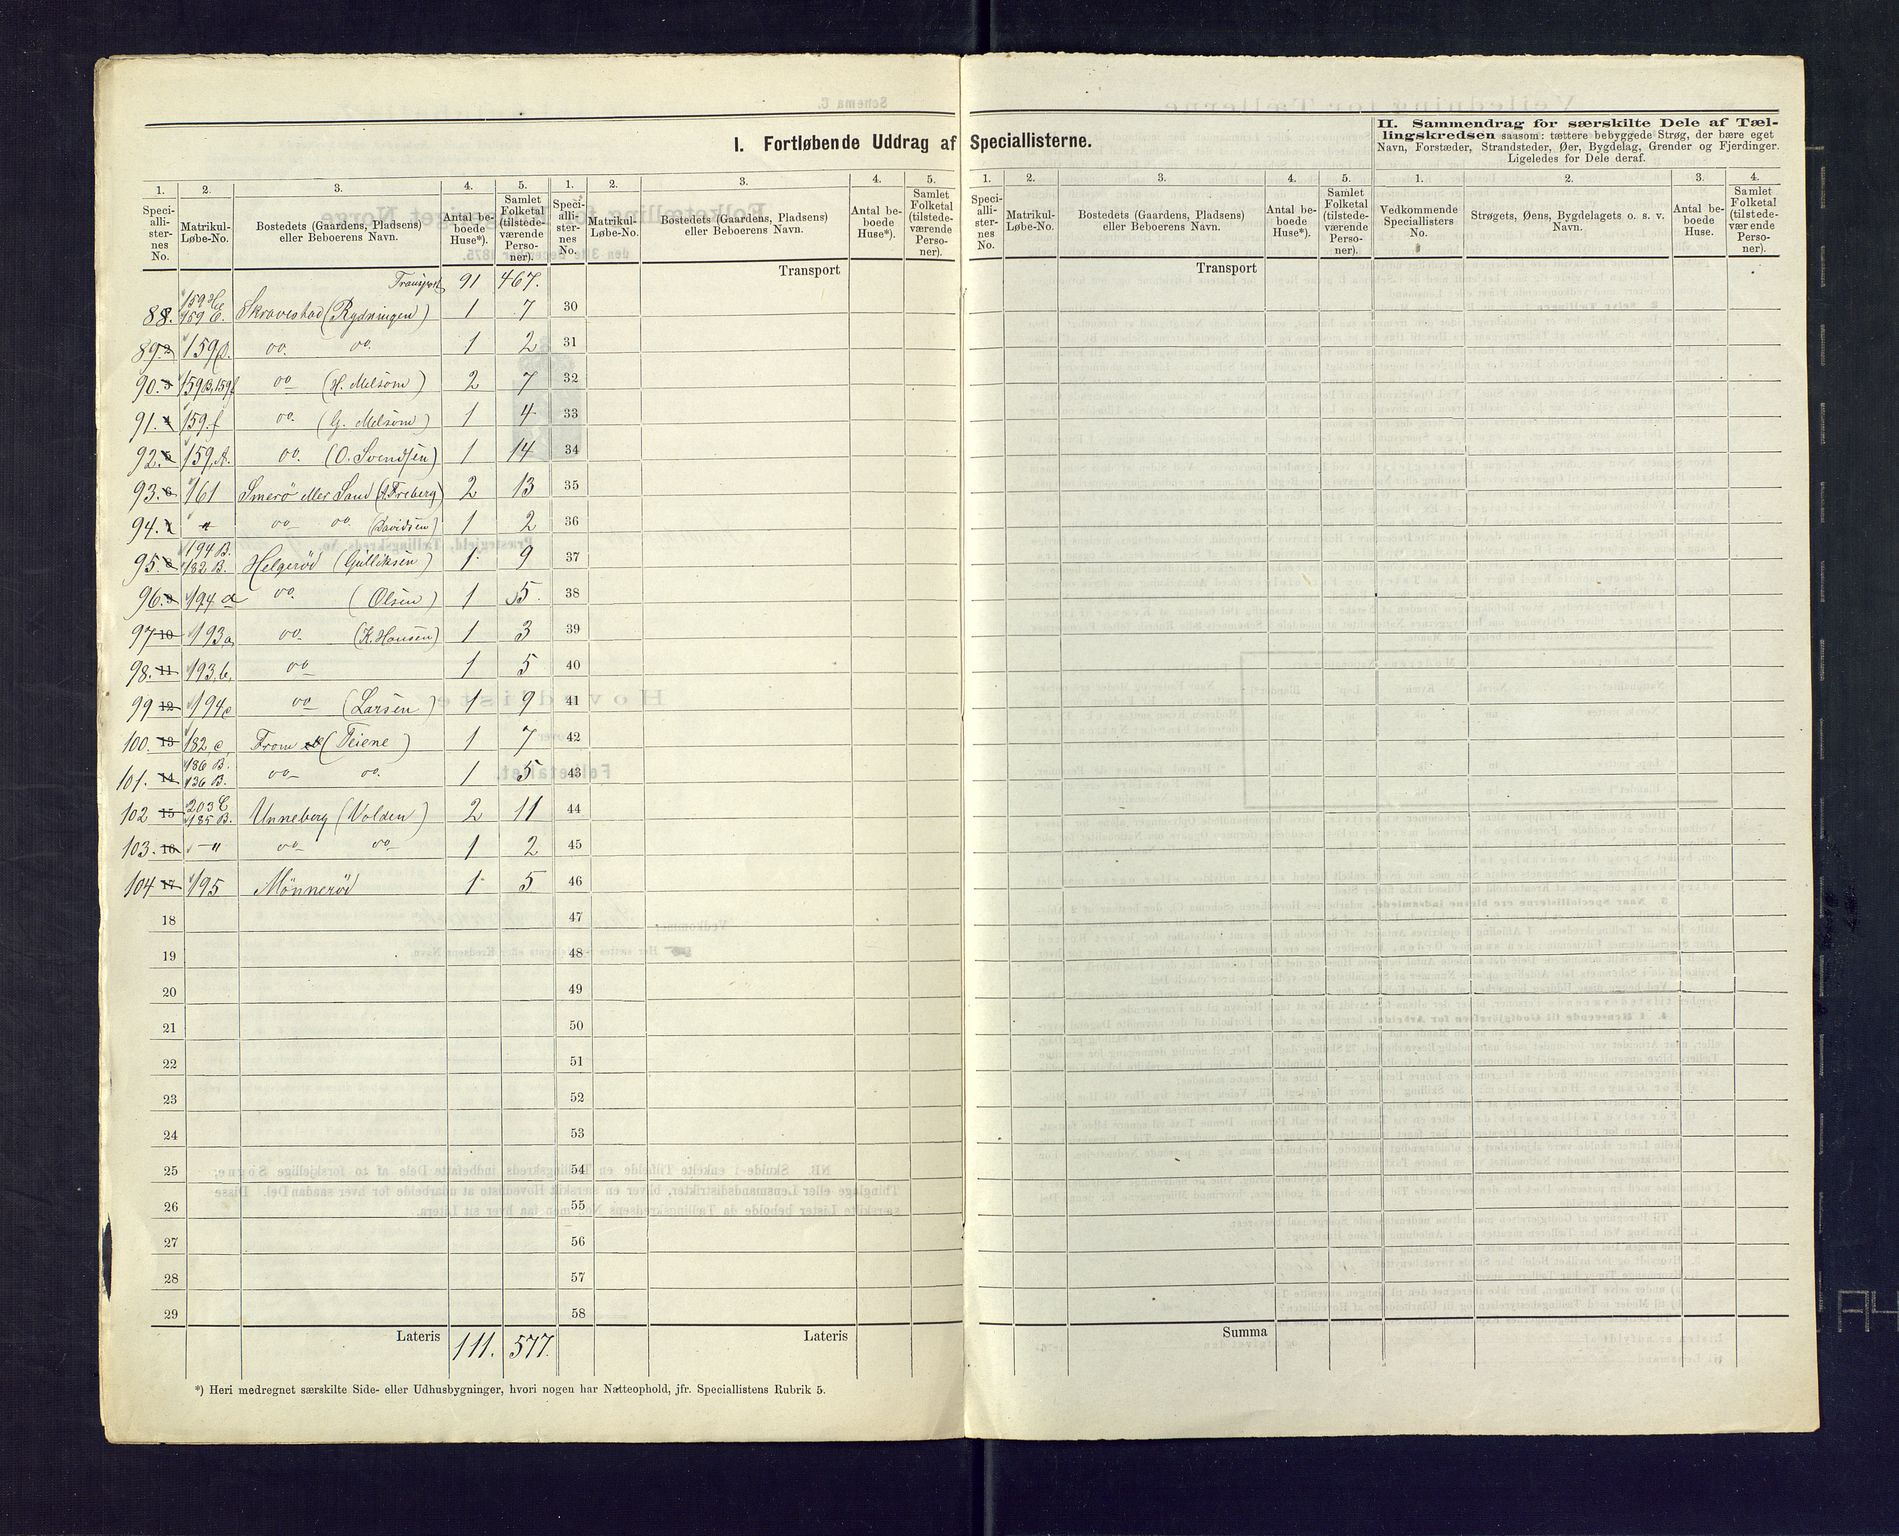 I. Fortløbende Uddrag af Speciallisterne.
II. Sammendrag for særskilte Dele af Tæl-
lingskredsen saasom: tættere bebyggede Strøg, der bære eget
Navn, Forstæder, Strandsteder, Øer, Bygdelag, Grender og Fjerdinger.
Ligeledes for Dele deraf.
1. 2. 3. 4. 5. 1. 2. 3. 4. 5. 1. 2. 3. 4. 5. 1. 2. 3. 4.
Speci-
alli-
ster-
nes
No.
Matrikul-
Løbe-No.
Bostedets (Gaardens, Pladsens)
eller Beboerens Navn.
Antal be-
boede
Huse*).
Samlet
Folketal
(tilstede-
værende
Perso-
ner).
Speci-
alli-
ster-
nes
No.
Matrikul-
Løbe-No.
Bostedets (Gaardens, Pladsens)
eller Beboerens Navn.
Antal be-
boede
Huse*).
Samlet
Folketal
(tilstede-
værende
Perso-
ner).
Speci-
alli-
ster-
nes
No.
Matrikul-
Løbe-No.
Bostedets (Gaardens, Pladsens)
eller Beboerens Navn.
Antal be-
boede
Huse*).
Samlet
Folketal
(tilstede-
værende
Perso-
ner).
Vedkommende
Speciallisters
No.
Strøgets, Øens, Bygdelagets o. s. v.
Navn.
Antal be-
boede
Huse.
Samlet
Folketal
(tilstede-
værende
Perso-
ner).
Transport 91 467. Transport Transport
88. 159 Skravestad (Rydningen) 1 7 30
89. 159 do. do. 1 2 31
90. 159 B, 159 do (H. Melsom) 2 7 32
91. 159.f do. (G. Melsom) 1 4 33
92. 159.A. do. (O. Svendsen) 1 14 34
93. 161 Smerø eller Sand (A. Freberg) 2 13 35
94. " do do (Davidsen) 1 2 36
95. 194 B. 182 B. Helgerød (Gulliksen) 1 9 37
96. 194 a do. (Olsen) 1 5. 38
97 10 193a do. (K. Hansen) 1 3 39
98. 11 193.b. do 1 5 40
99 12 194c do (Larsen) 1 9 41
100. 13 182 c, From (Teiene) 1 7 42
101. 14 186 B. 136 B. do do. 1 5 43
102 15 203 C 185 B. Unneberg (Volden) 2 11 44
103. 16 " do do 1 2 45
104 17 195 Mönnerød 1 5 46
18 47
19 48
20 49
21 50
22 51
23 52
24 53
25 54
26 55
27 56
28 57
29 58
Lateris 111. 577. Lateris Summa
*) Heri medregnet særskilte Side- eller Udhusbygninger, hvori nogen har Natteophold, jfr. Speciallistens Rubrik 5.